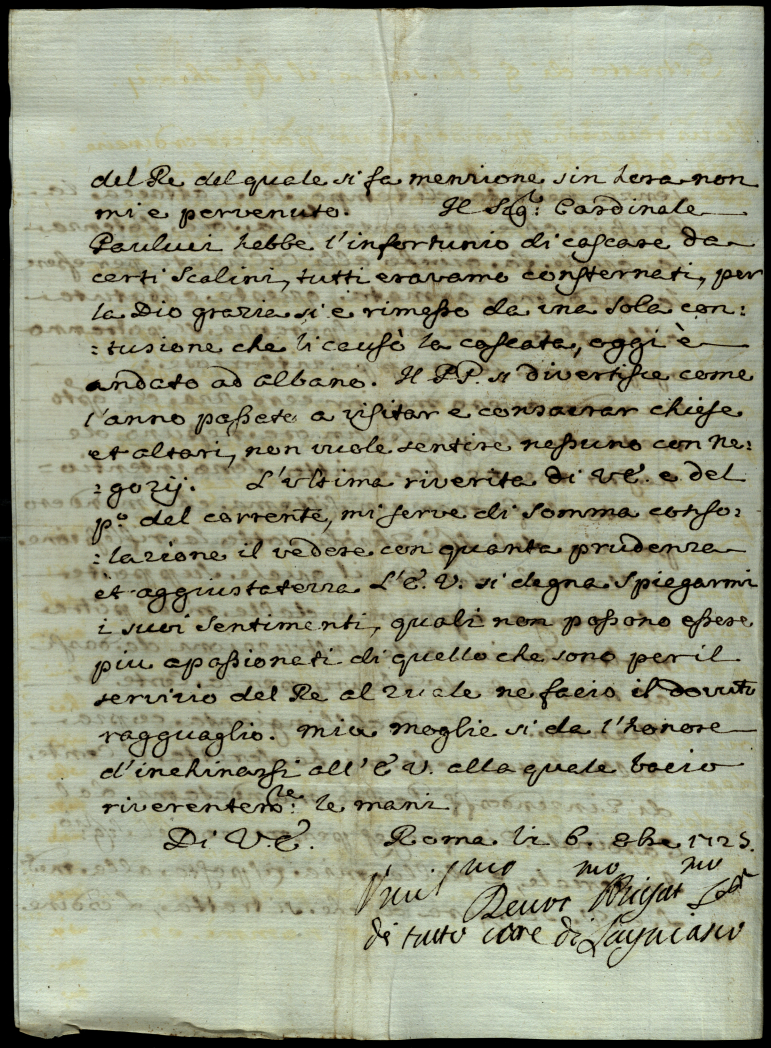 del Re del quale si fa menzione sin hora non
mi e pervenuto. Il Sig.re Cardinale
Paulucci hebbe l'infortunio di cascare da
certi Scalini, tutti eravamo consternati, per
la Dio grazia si è rimesso da una sola con:
:tusione che li causò la cascata, oggi è
andato ad albano. Il PP. si divertisce come
l'anno passato a visitar e consacrar chiese
et altari, non vuole sentire nessuno con ne:
:gozij. L'ultima riverita di V.E. e del
p.o del corrente, mi serve di somma conso:
:lazione il vedere con quanta prudenza
et aggiustatezza L'E.V. si degna spiegarmi
i suoi sentimenti, quali non possono essere
piu apassionati di quello che sono per il
servizio del Re al quale ne facio il dovuto
ragguaglio. mia moglie si da l'honore
d'inchinarsi all'E V. alla quale bacio
riverentem.te le mani
Di V.E. Roma li 6. 8bre 1725.
Umil.mo Devot.mo Obligat.mo Ser
di tutto core di Lagnasco